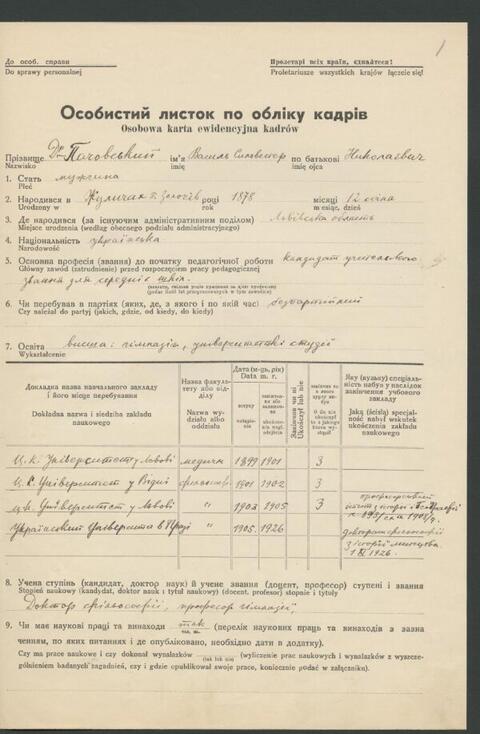 1
До особ. справи
Do sprawy personalnej
Пролетарі всіх країн, єднайтеся!
Proletariusze wszystkich krajów łączcie się!
Особистий листок по обліку кадрів
Osobowa karta ewidencyjna kadrów
Прізвище Др Пачовський ім'я Василь Сильвестер по батькові Николаєвич
Nazwisko imię imię ojca
1. Стать мужчина
Płeć
2. Народився в Жуличах п. Золочів році 1878 місяці 12 січня
Urodzony w rok miesiąc, dzień
3. Де народився (за існуючим адміністративним поділом) Львівська область
Miejsce urodzenia (według obecnego podziału administracyjnego)
4. Національність українська
Narodowość
5. Основна професія (звання) до початку педагогічної роботи кандидат учительського
Główny zawód (zatrudnienie) przed rozpoczęciem pracy pedagogicznej
звання для середніх шкіл
6. Чи перебував в партіях (яких, де, з якого і по який час) безпартійний
Czy należał do partyj (jakich, gdzie, od kiedy, do kiedy)
7. Освіта висша: гімназія, університетські студії
Wykształcenie
Докладна назва навчального закладу і його місце перебування
Dokładna nazwa i siedziba zakładu naukowego
Назва факультету або відділу
Nazwa wydziału albo oddziału
Дата (м-ць, рік)
Data m. r.
вступу
Закінчив чи ні
Ukończył lub nie
Яку (вузьку) спеціальність набув у наслідок закінчення учбового закладу
Jaką (ścisłą) specjalność nabył wskutek ukończenia zakładu
Ц. К. Університет у Львові медични 1899 1901 3
Ц. К. Університет у Відні філософ. 1901 1902 3
Ц. К. Університет у Львові " 1903 1905 3
Український Університет в Празі " 1905. 1926
докторат філософії
з історії мистецтва.
1926.
8. Учена ступінь (кандидат, доктор наук) й учене звання (доцент, професор) ступені і звання
Stopień naukowy (kandydat, doktor nauk i tytuł naukowy) (docent, profesor) stopnie i tytuły
Доктор філософії, професор гімназії
9. Чи має наукові праці та винаходи так (перелік наукових праць та винаходів з зазна
так, ні.
ченням, по яких питаннях і де опубліковано, необхідно дати в додатку).
Czy ma prace naukowe i czy dokonał wynalazków (wyliczenie prac naukowych i wynalazków z wyszcze-
(tak lub nie)
gólnieniem badanych zagadnień, czy i gdzie opublikował swoje prace, koniecznie podać w załączniku).